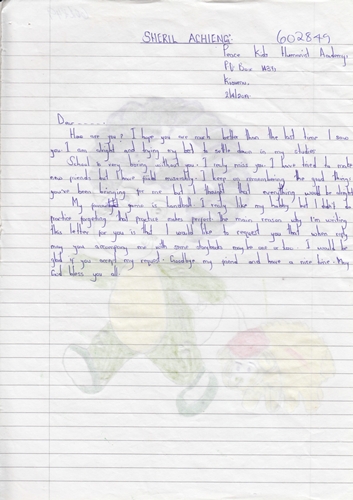 SHERIL ACHIENG. 602849
Peace Kids Academy,
P.O. Box
Kisumu.
Dear
How are you? I hope you are much better than the last time I saw
you. I am alright and trying my best to settle down in my studies.
School is very boring without you. I really miss you. I have tried to make
new friends but I have failed miserably. I keep on remembering the good things
you've been bringing for me but I thought that everything would be alright
My favourite game is baseball. I really like my hobby but I didn't do
practice forgetting that practice makes perfect. The main reason why I'm writing
this letter for you is that I would like to request you that when
may you accompany me with some storybooks maybe one or two. I would be
glad if you accept my request. Goodbye my friend and have a nice time. May
God bless you all